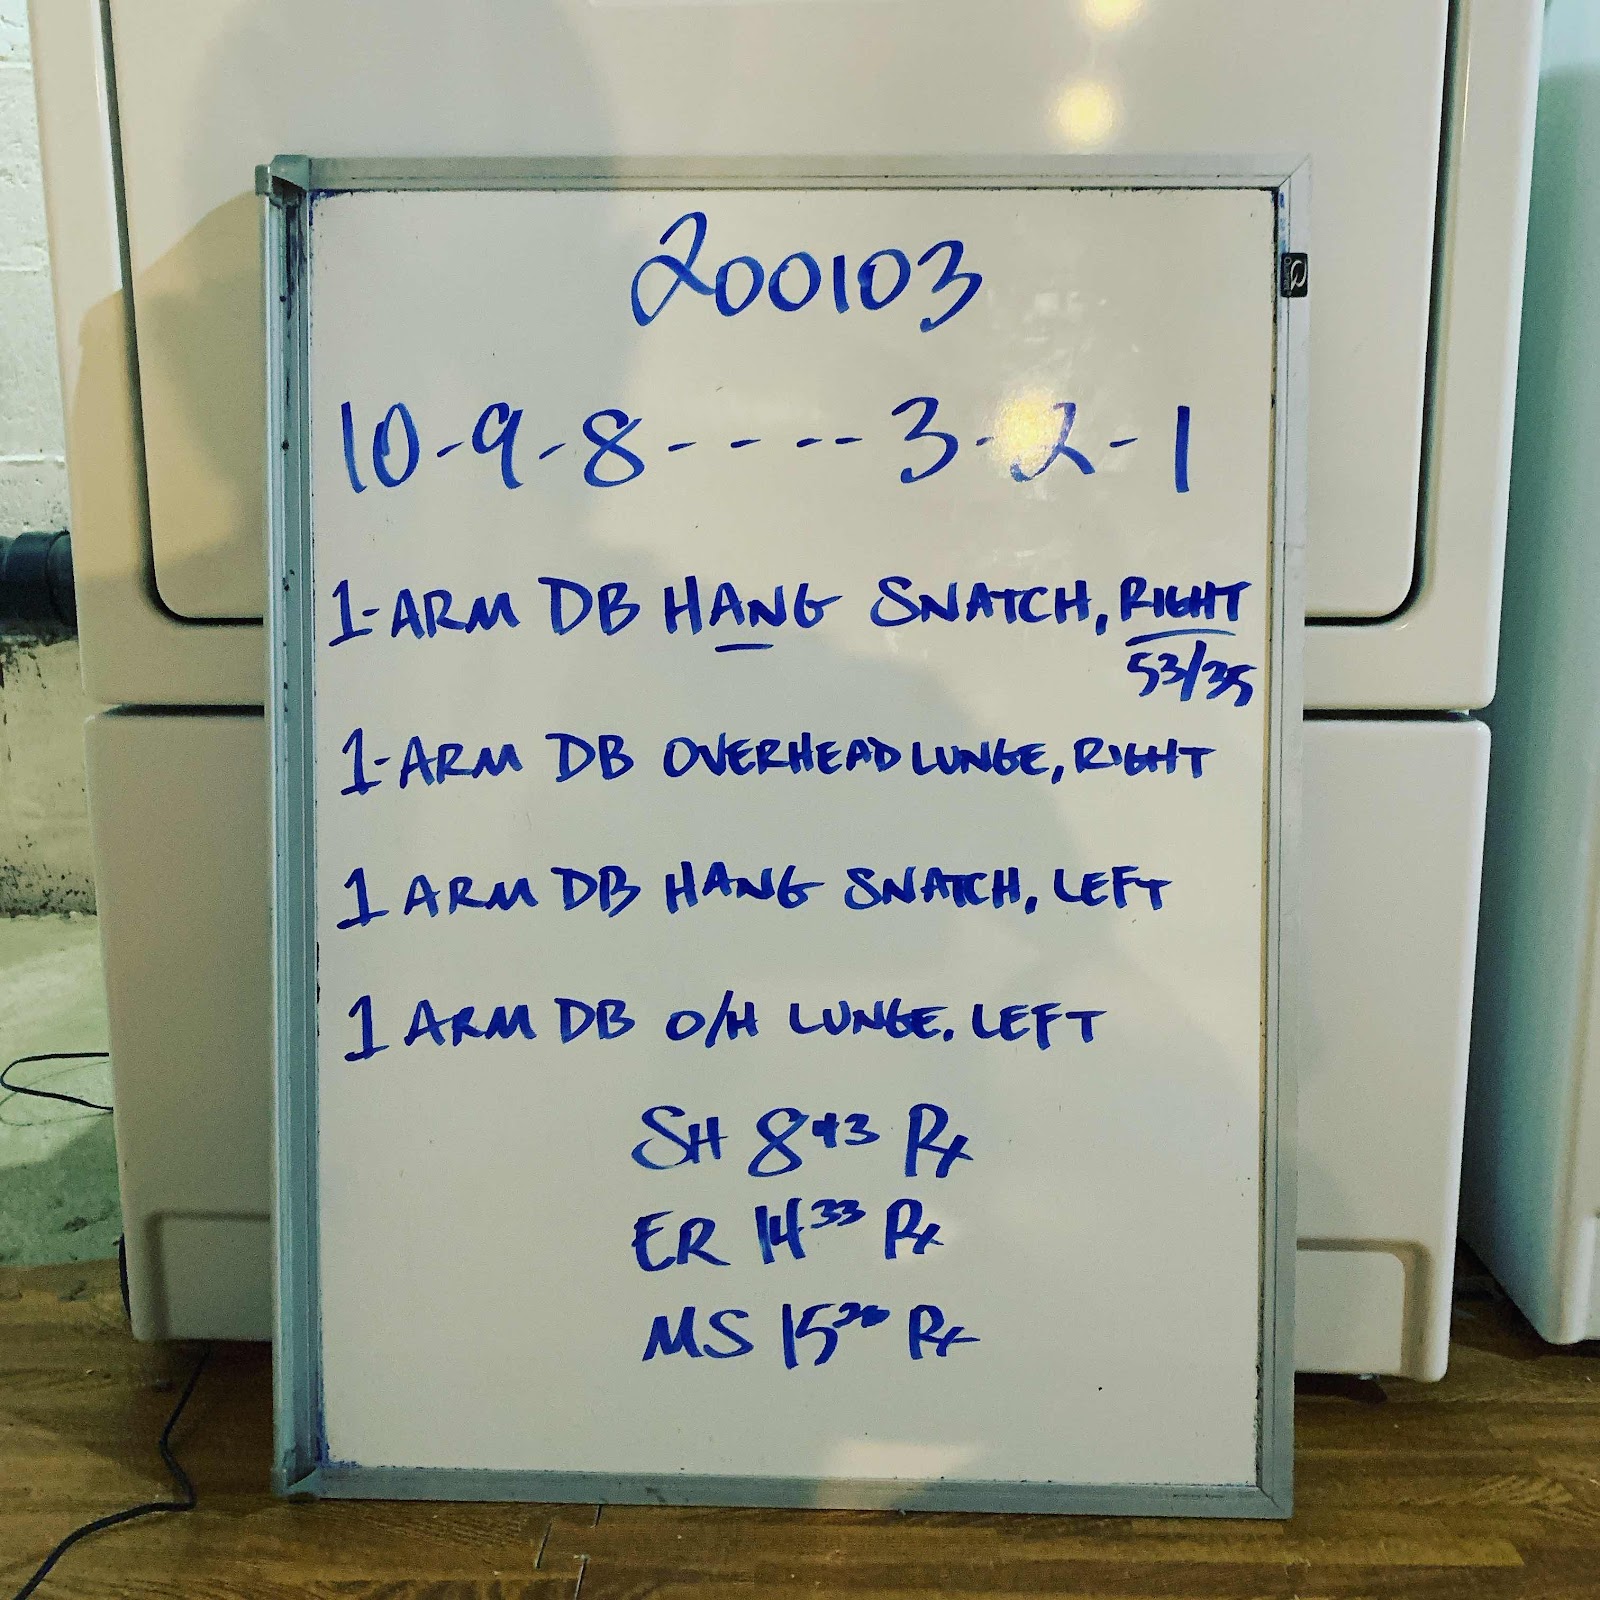 200103
10-9-8-----3-2-1
1-ARM DB HANG SNATCH, RIGHT
53/35
1-ARM DB OVERHEAD LUNGE, RIGHT
1 ARM DB HANG SNATCH, LEFT
1 ARM DB O/H LUNGE. LEFT
SH 8 43 Rx
ER 14 33 Rx
MS Rx